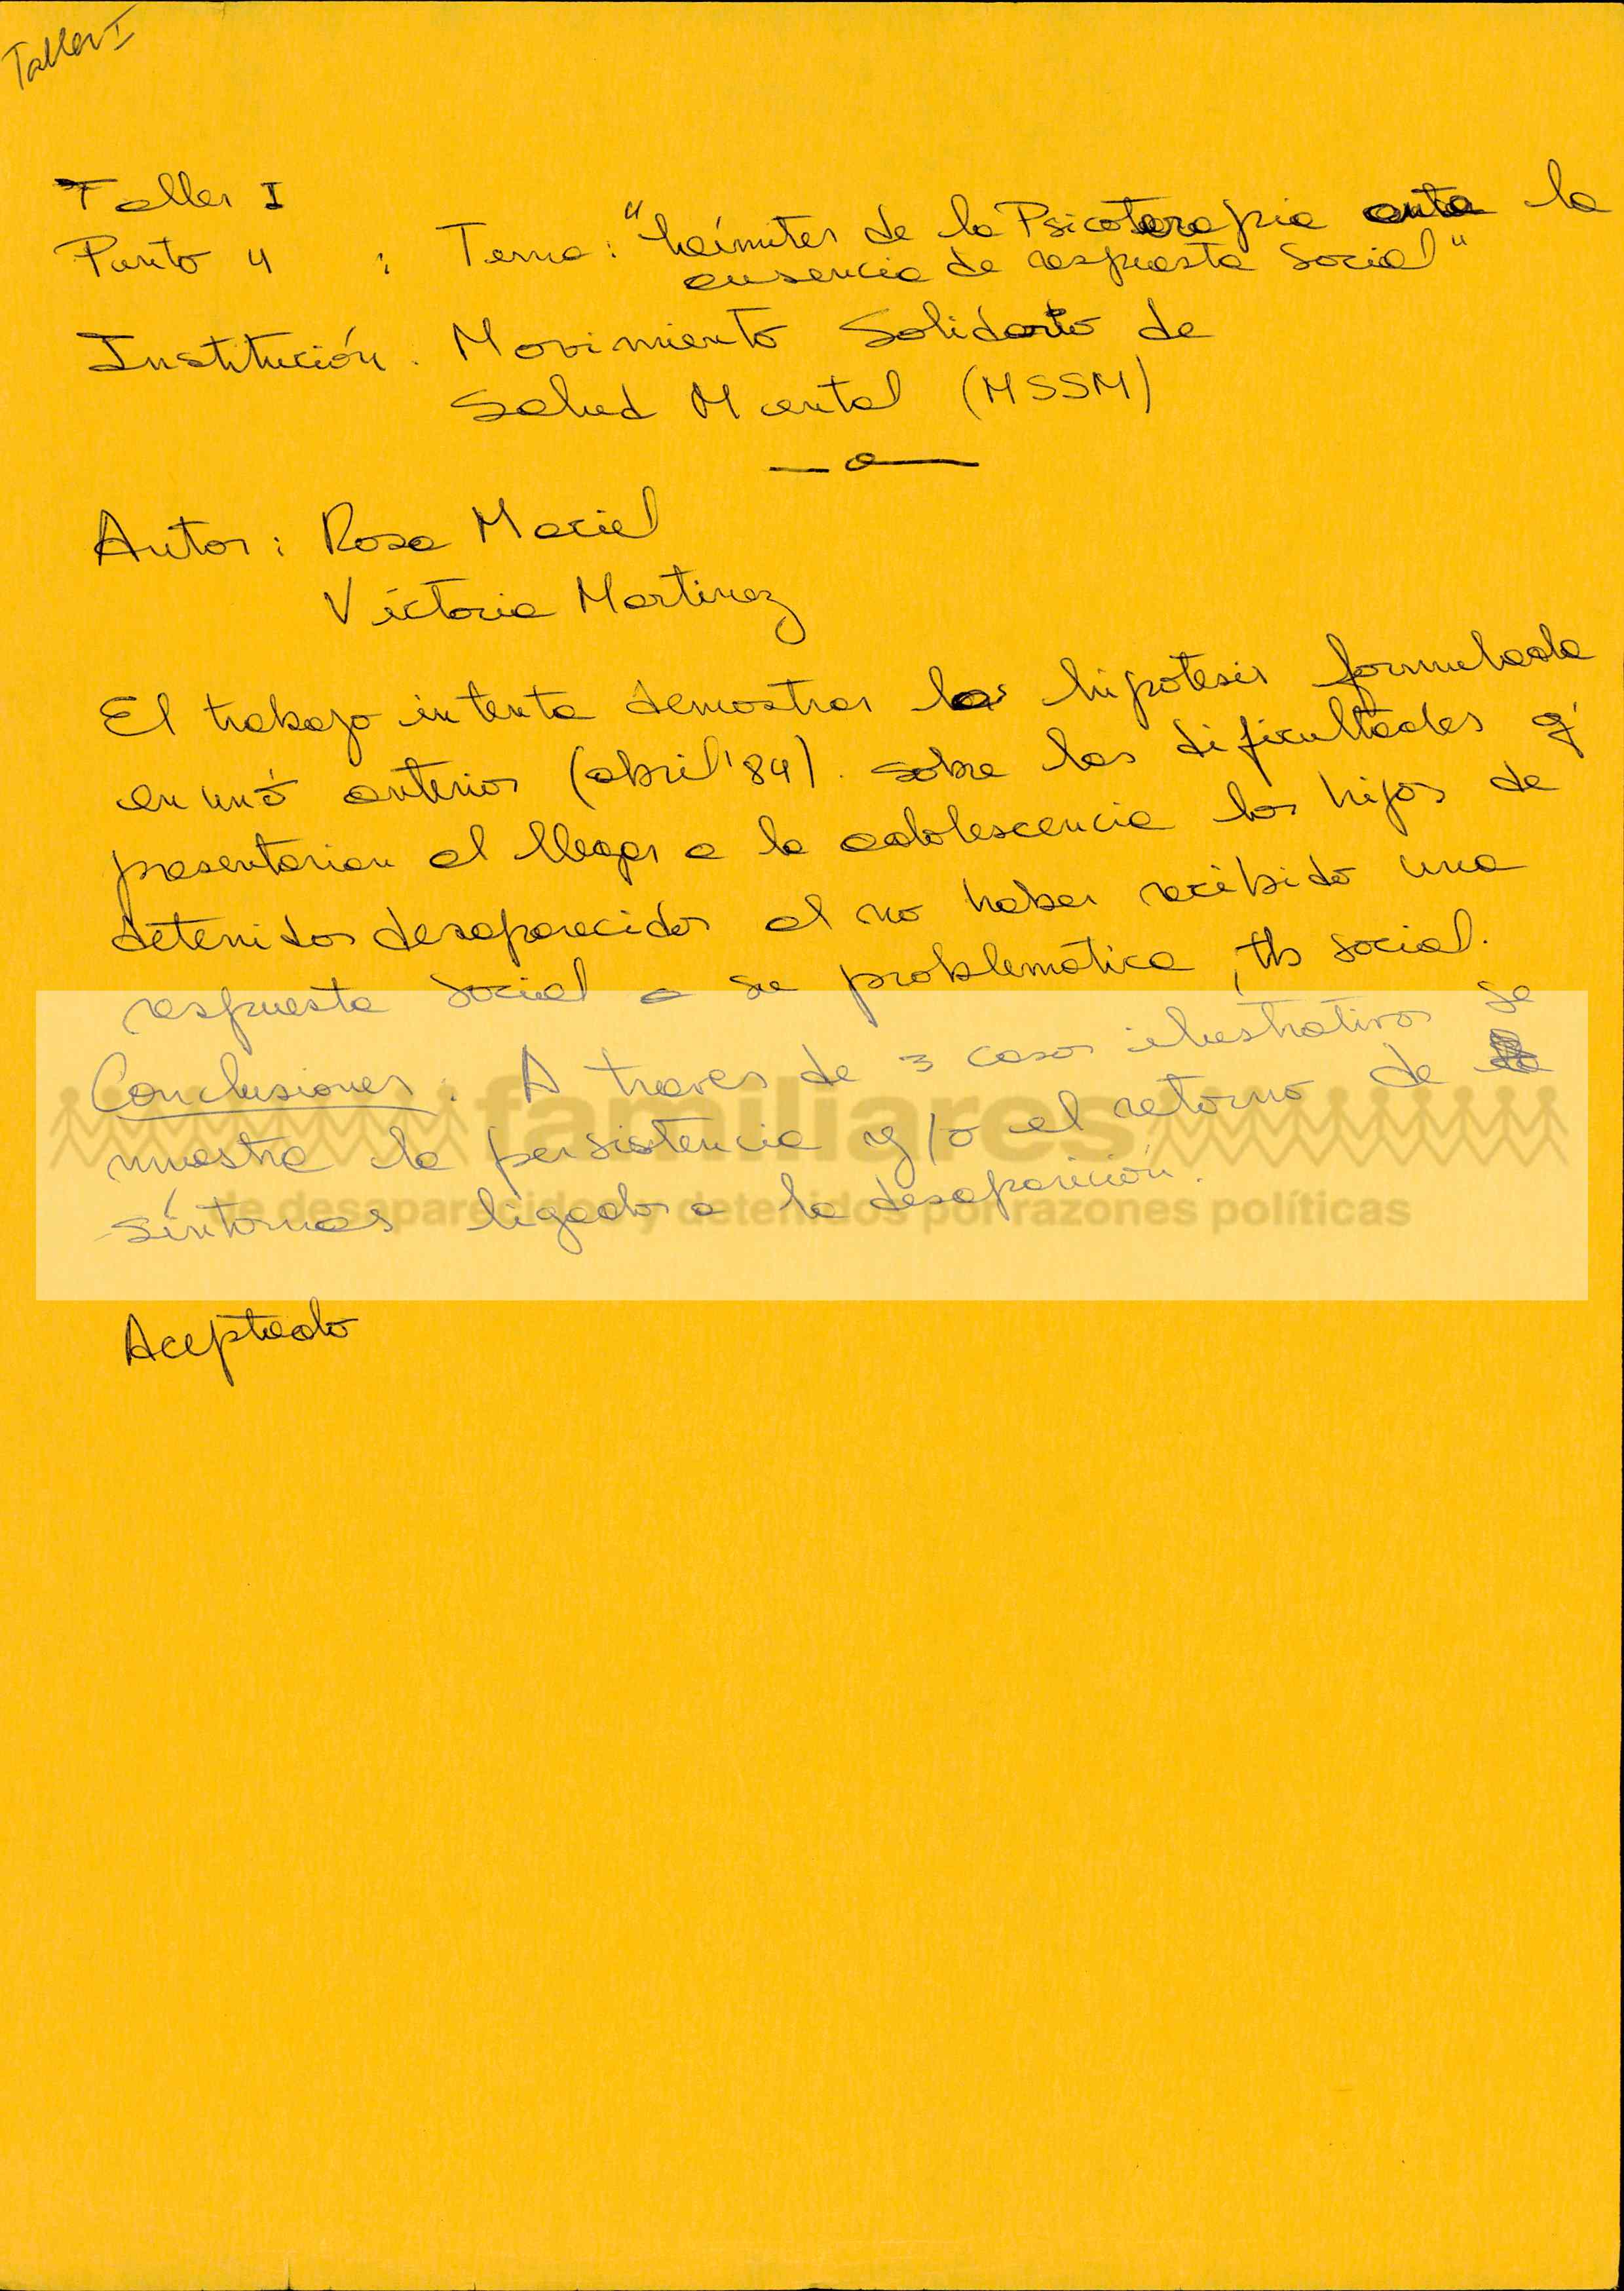 Taller I
Taller I
Punto 4 : Tema: "Límites de la Psicoterapia ante la
ausencia de respuesta Social"
Institución: Movimiento Solidario de
Salud Mental (MSSM)
Autor: Rosa Maciel
Victoria Martinez
El trabajo intenta demostrar las hipotesis formulada
en uno anterior (abril '84). sobre las dificultades q'
presentarian al llegar a la adolescencia los hijos de
detenidos desaparecidos al no haber recibido una
respuesta social a su problemática, tb social.
Conclusiones. A traves de 3 casos ilustrativos se
muestra la persistencia y/o el retorno de
síntomas ligados a la desaparición.
familiares
de desaparecidos y detenidos por razones políticas
Aceptado